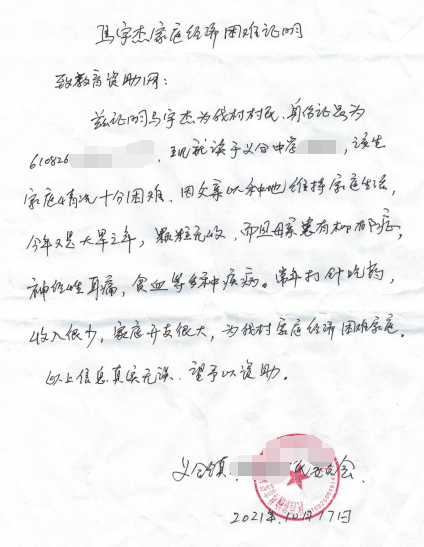 马宇杰家庭经济困难证明
致教育资助网:
兹证明马宇杰为我村村民,身份证号为
610826 ,现就读于义合中学 ,该生
家庭情况十分困难,因父亲以种地维持家庭生活,
今年又是大旱之年,颗粒无收,而且母亲患有抑郁症,
神经性耳痛,贫血等多种疾病。常年打针吃药,
收入很少,家庭开支很大,为我村家庭经济困难家庭。
以上信息真实无误,望予以资助。
义合镇 民委员会
2021年10月17日